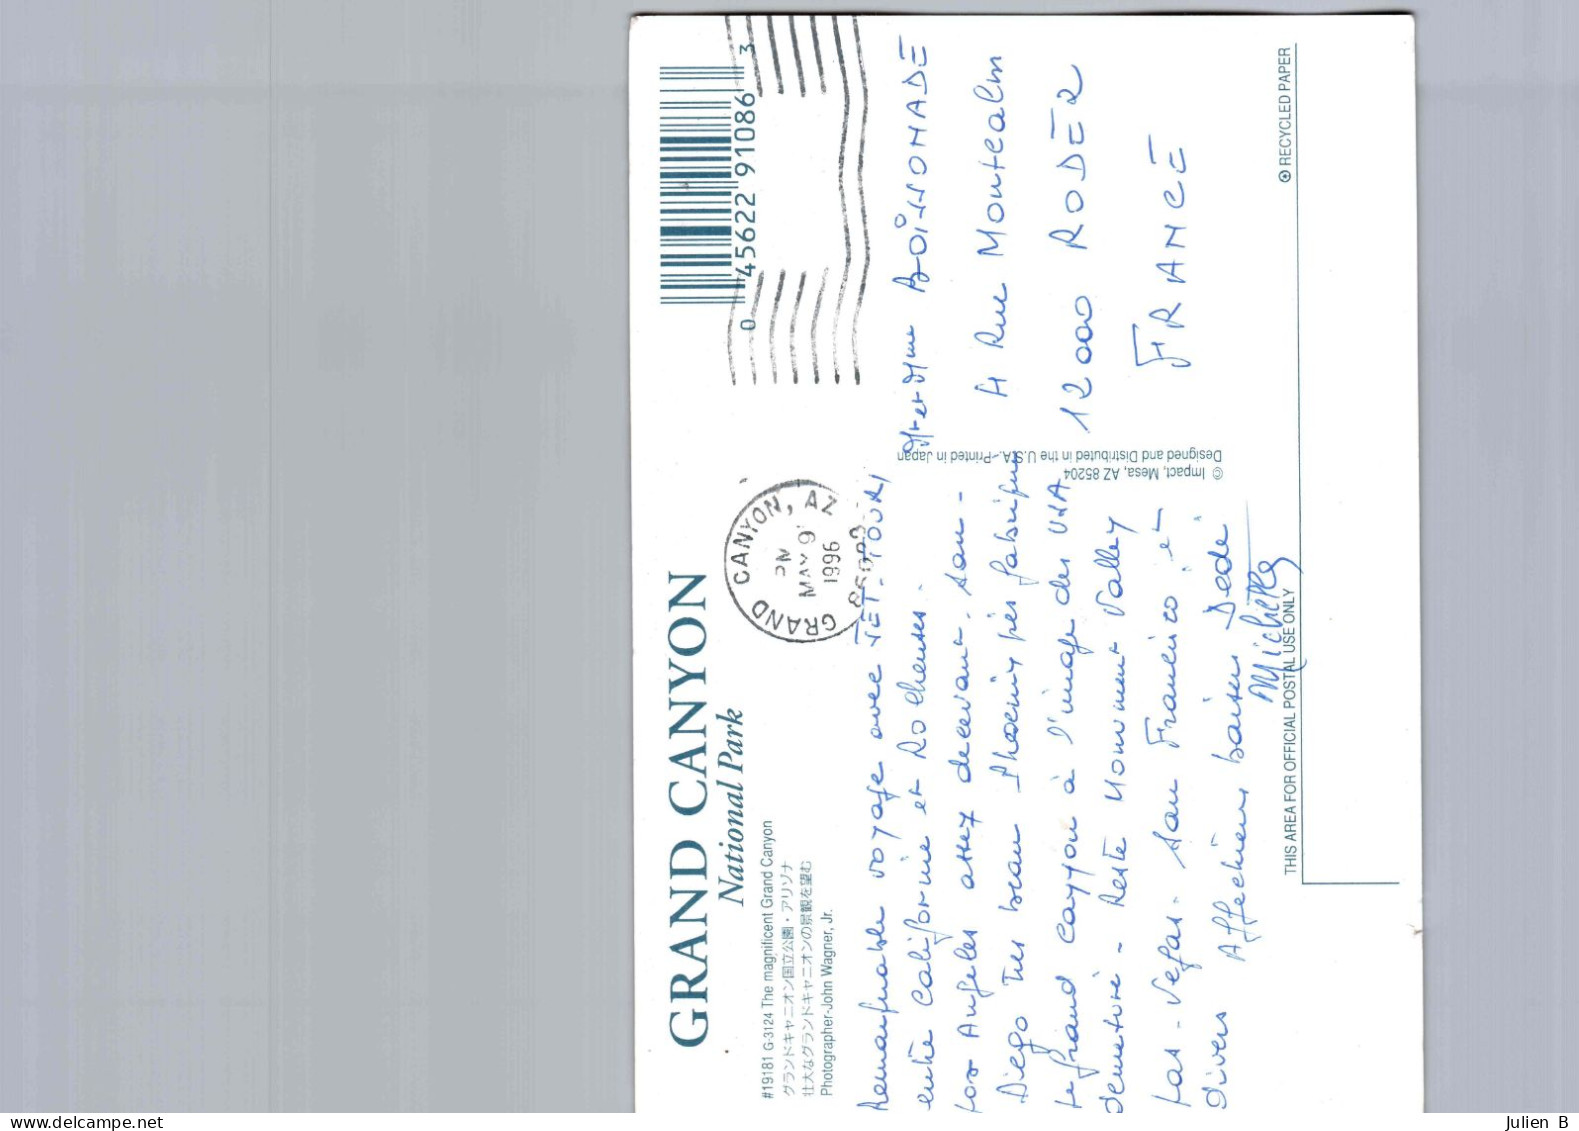 GRAND CANYON
National Park
#19181 G-3124 The magnificent Grand Canyon
グランドキャニオン国立公園・アリゾナ
壮大なグランドキャニオンの景観を望む
Photographer-John Wagner, Jr.
GRAND CANYON, AZ
PM
MAY 9
1996
0 45622 91086 3
Remarquable voyage avec JET-TOURS
entre Californie et Rocheuses.
Los Angeles assez decevant. San-
Diego très beau Phoenix
le grand canyon à l'image des USA
demeturé - Reste Monument Valley
Las-Vegas. San Francisco, et
divers
Affectueux baisers Dédé
Michelle
Mr et Mme BOISSONADE
4 Rue Montcalm
12000 RODEZ
FRANCE
© Impact, Mesa, AZ 85204
Designed and Distributed in the U.S.A.-Printed in Japan
THIS AREA FOR OFFICIAL POSTAL USE ONLY
RECYCLED PAPER
Julien B